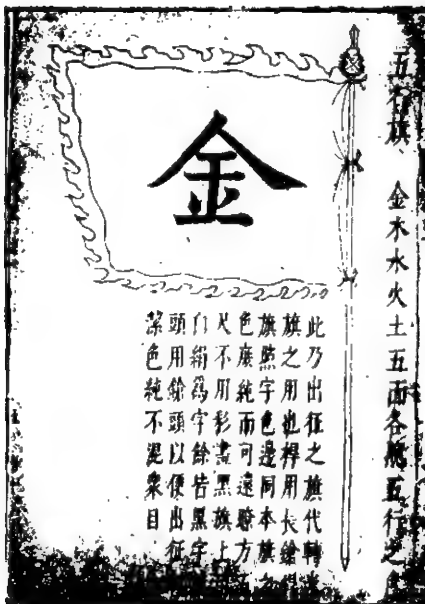 五行旗、金木水火土五面各五行之
金
此乃出征之旗代轉
旗之用也桿用長鎗
旗照字色邊同本旗
色庶純而可遠瞭方
尺不用彩畫黑旗上
白絹爲字餘皆黑字
頭用鎗頭以便出征
潔色純不混衆目